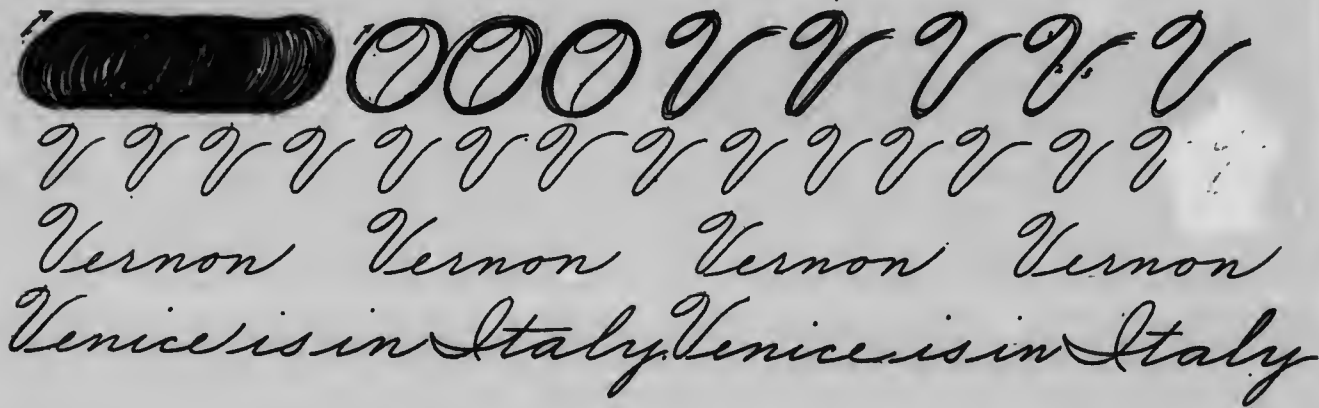 V V V V V
V V V V V V V V V V V V V V
Vernon Vernon Vernon Vernon
Venice is in Italy. Venice is in Italy